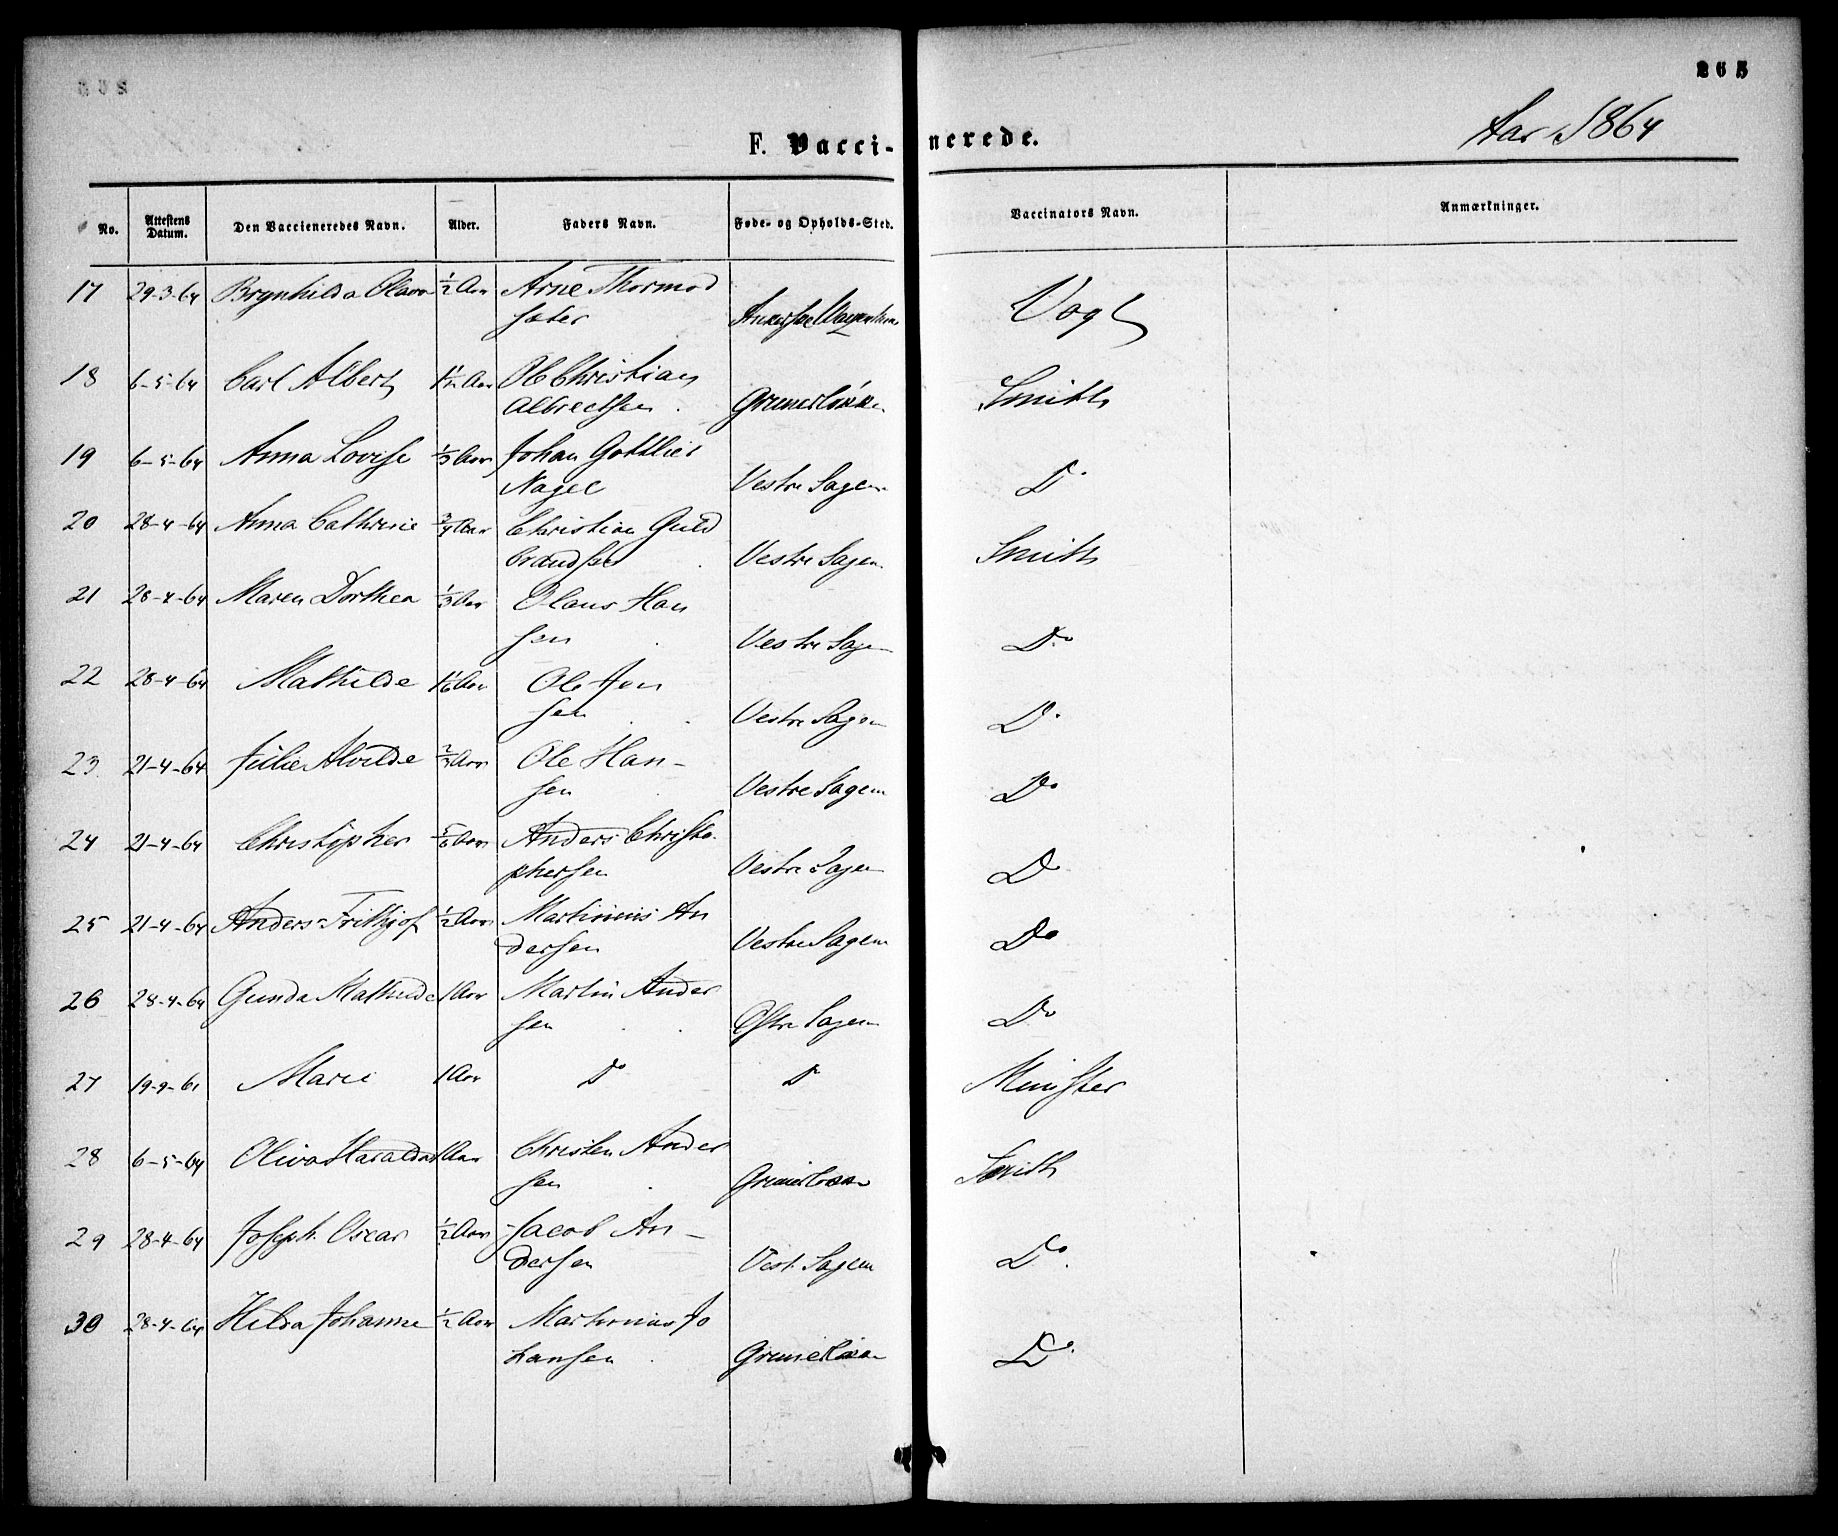 265
Aar 1864
F. Vaccinerede.
No. Attestens Datum. Den Vaccieneredes Navn. Alder. Faders Navn. Føde- og Opholds-Sted. Vaccinators Navn. Anmærkninger.
17 29-3-64 Brynhilda Olava 1/2 Aar Arne Thormod
sæter Vogt
18 6-5-64 Carl Albert 1 1/12 Aar Ole Christian
Albrectsen Grünerløkken Smith
19 6-5-64 Anna Lovise 1/3 Aar Johan Gottlieb
Nagel Vestre Sagene Do
20 28-4-64 Anna Cathrine 3/4 Aar Christian Guld
brandsen Vestre Sagen Smith
21 28-4-64 Maren Dorthea 1/3 Aar Olaus Han
sen Vestre Sagen Do
22 28-4-64 Mathilde 1 1/6 Aar Ole Jen
sen Vestre Sagen Do
23 21-4-64 Julie Alvilde 2/3 Aar Ole Han-
sen Vestre Sagene Do
24 21-4-64 Christopher 5/6 Aar Anders Christo-
phersen Vestre Sagen Do
25 21-4-64 Anders Frithjof 1/2 Aar Martinius An
dersen Vestre Sagene Do
26 28-4-64 Gunda Mathilde 1 Aar Martin Ander
sen Østre Sagene Do
27 19-9-61 Marie 1 Aar Do Do Münster
28 6-5-64 Oliva Haralda 1 Aar Christen Ander
sen Grünerløkken Smith
29 28-4-64 Joseph Oscar 1/2 Aar Jacob An-
dersen Vest. Sagene Do.
30 28-4-64 Hilda Johanne 1/2 Aar Martinius Jo
hansen Grünerløkken Do.